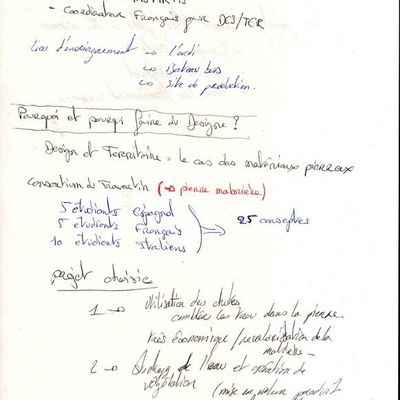 - Coordinateur Français pour DCS/TCR
Lieu d'enseignement → l'ardi
↳ Bateau bois
↳ Site de production.
Pourquoi et pourqi faire du Designe ?
Design et Territoire : le cas des matériaux pierreux
Consortium du Travertin (→ pierre matière)
5 étudiants Espagnol
5 étudiants Français
10 étudiants Italiens
25 conseptes
projet choisie
1 → Utilisation des chutes
les eau dans la pierre
très économique / revalorisation de la
matière -
2 → de l'eau et opération de
végétation
(mise en nature produit